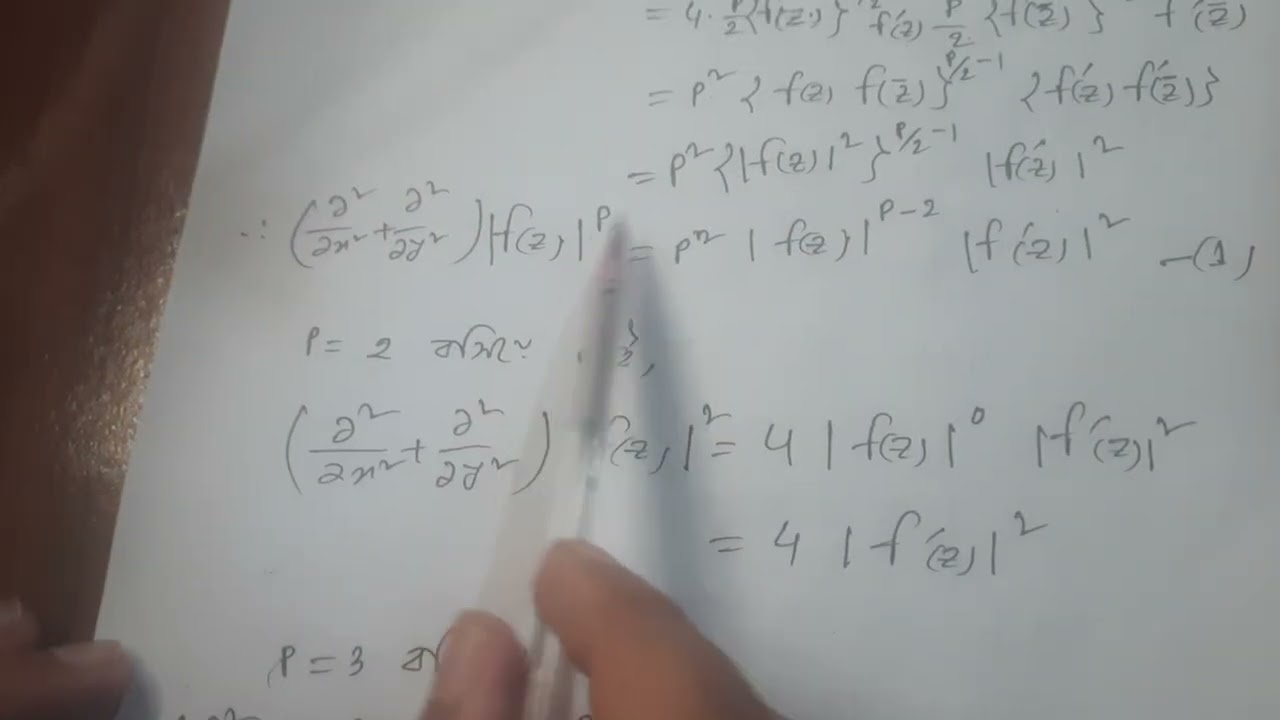 = 4. p/2 {f(z)} f′(z) p/2 {f(z̄)} f′(z̄)
= p² {f(z) f(z̄)}^{p/2-1} {f′(z) f′(z̄)}
= p² {|f(z)|²}^{p/2-1} |f′(z)|²
∴ (∂²/∂x² + ∂²/∂y²) |f(z)|^p = p² |f(z)|^{p-2} |f′(z)|² —(1)
p = 2
(∂²/∂x² + ∂²/∂y²) (z)|² = 4 |f(z)|⁰ |f′(z)|²
= 4 |f′(z)|²
p = 3